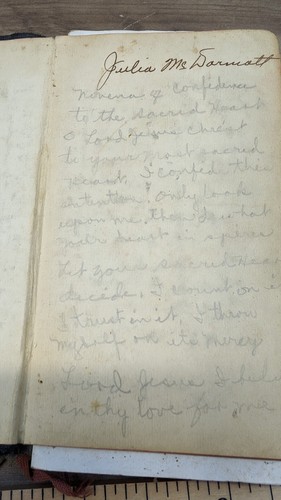 Julia McDarmott
Novena of Confidence
to the Sacred Heart
O Lord Jesus Christ
to your most sacred
Heart, I confide this
intention. Only look
upon me, then do what
your heart inspires
Let your sacred Hear
decide, I count on i
I trust in it, I throw
myself on its mercy
Lord Jesus I
in thy love for me